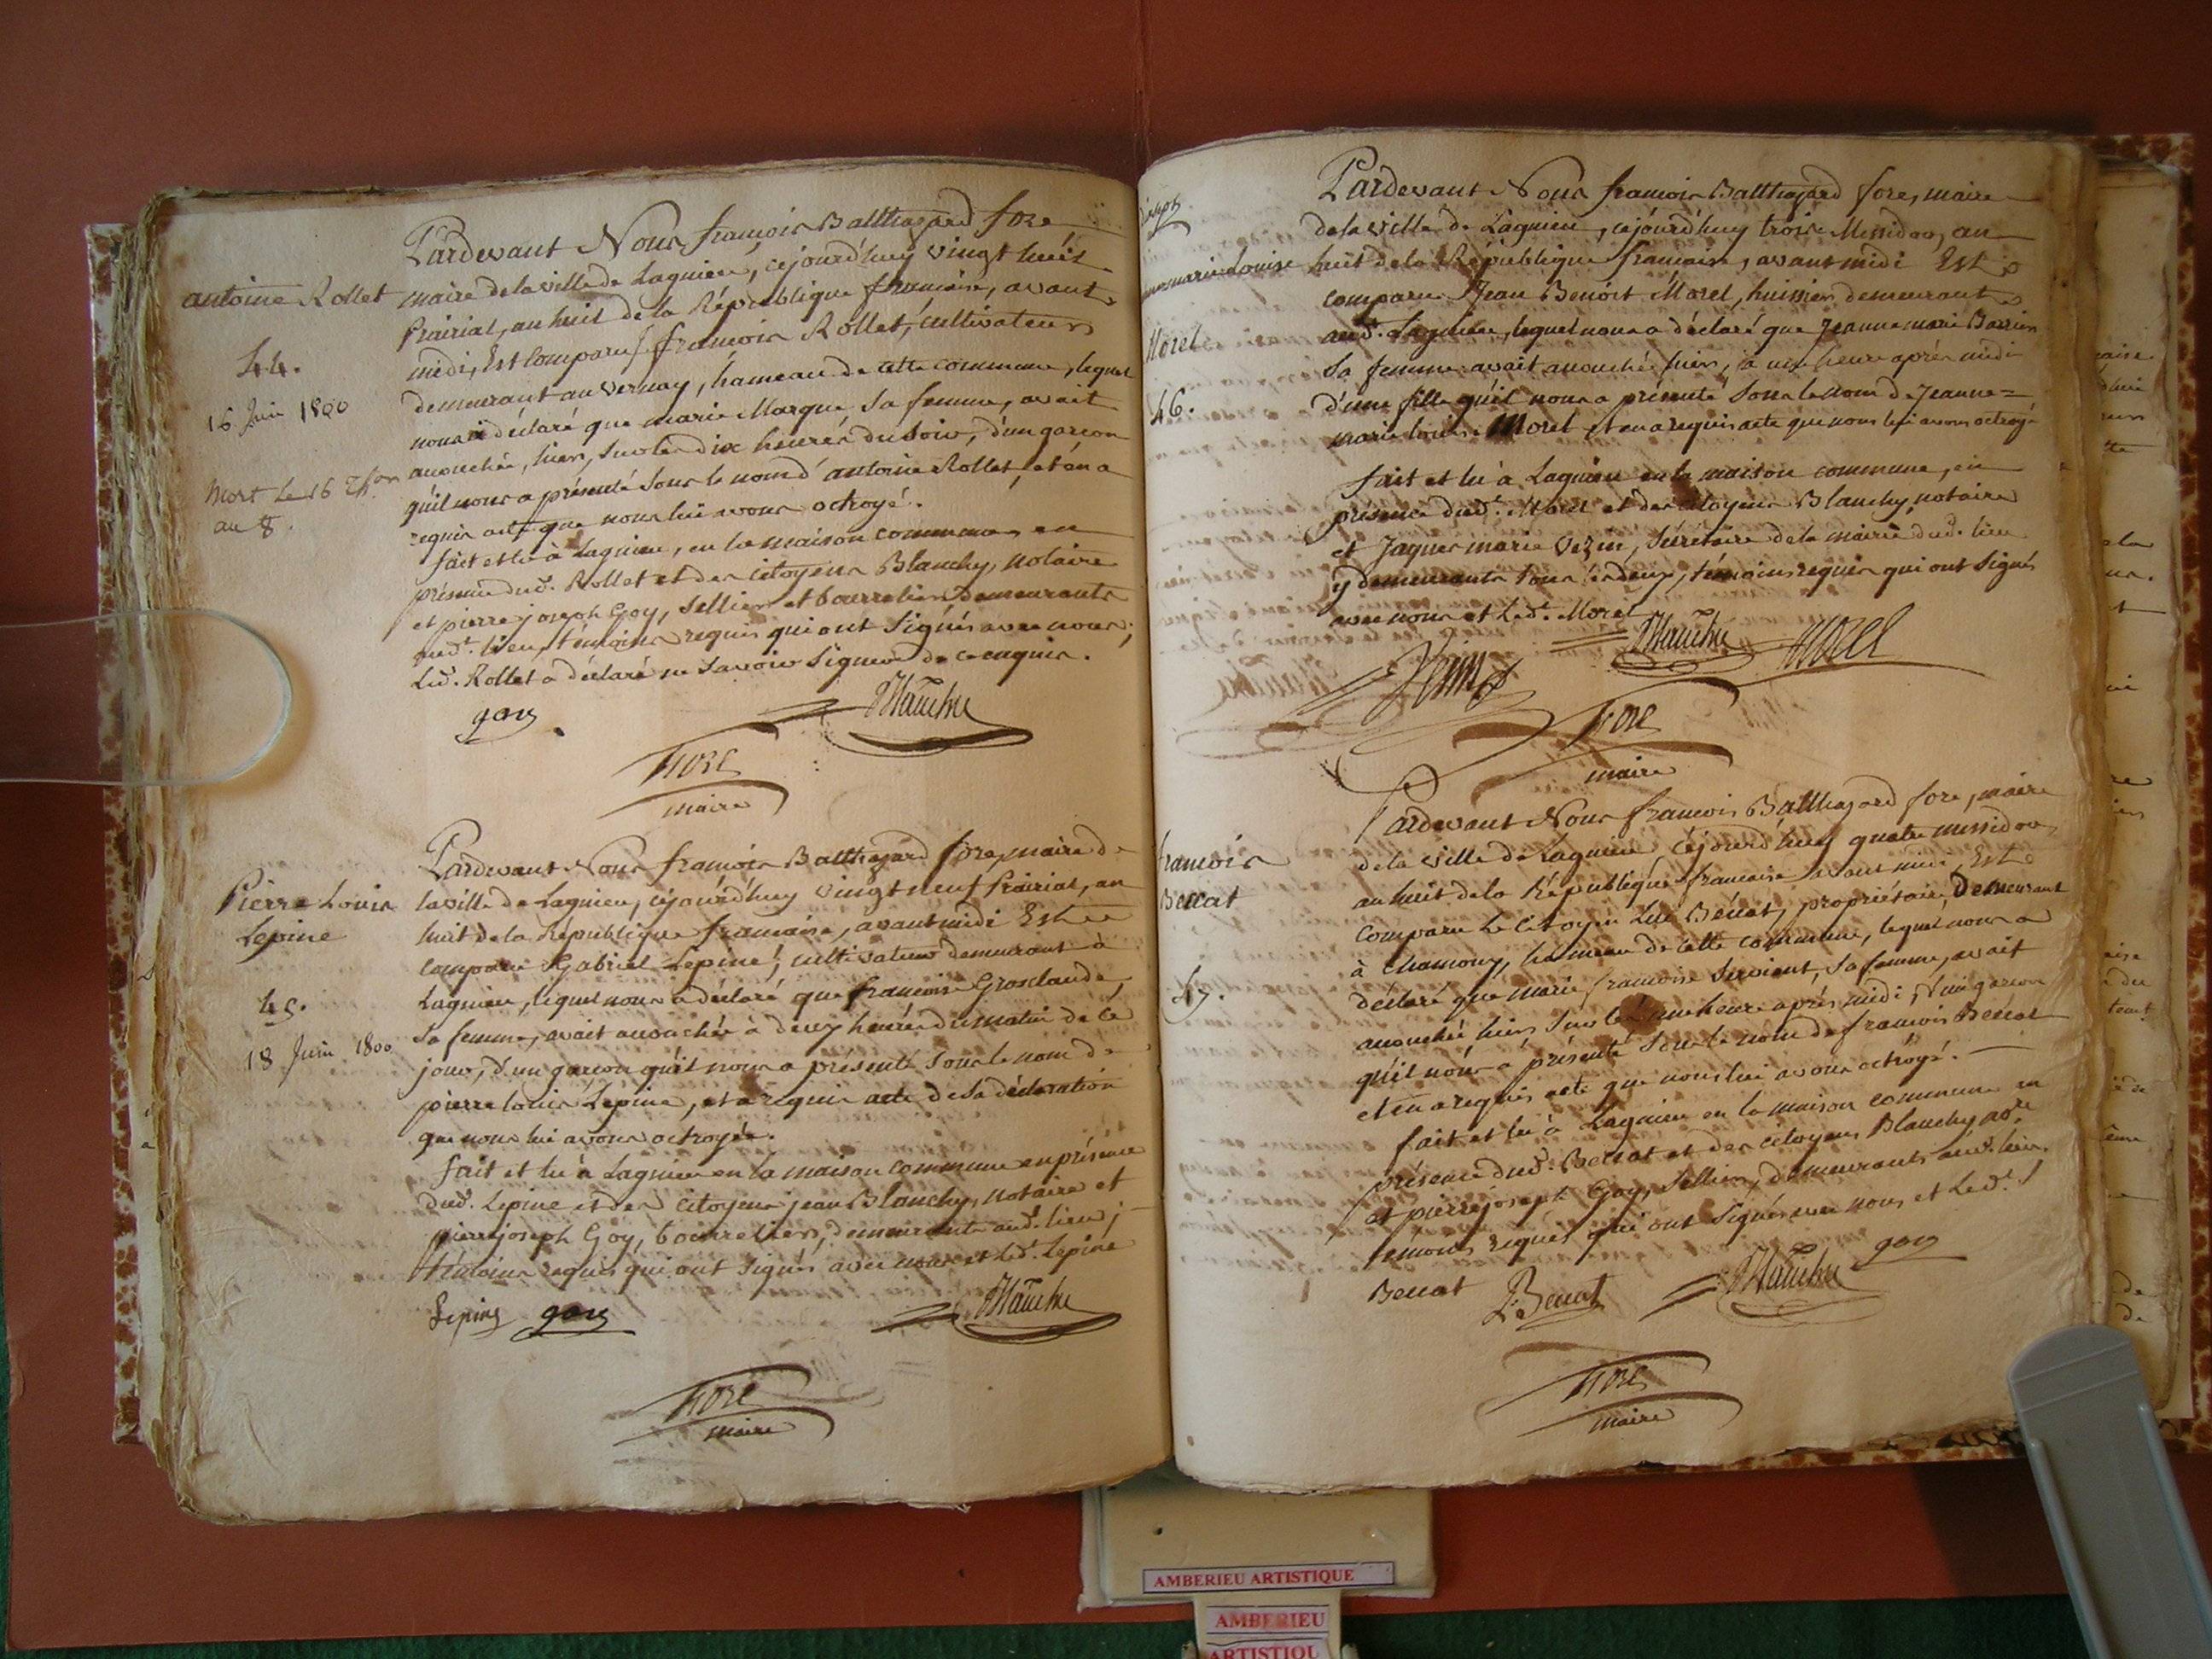 antoine Rollet
44.
16 Juin 1800
Mort Le 16 Th.or
an 8.
Pardevant Nous françois Balthazard fore
maire de la ville de Lagnieu, cejourd'huy vingt huit
Prairial, an huit de la République française, avant
midi, Est Comparu françois Rollet, cultivateur
demeurant au vernay, hameau de cette commune, lequel
nous a déclaré que marie Marque, sa femme, avait
accouchée, hier, sur les dix heures du soir, d'un garçon
qu'il nous a présenté sous le nom d'antoine Rollet, et en a
requis acte que nous lui avons octroyé.
fait et lu à Lagnieu, en la maison commune, en
présence dud. Rollet et des citoyens Blanchy, notaire
et pierre joseph Goy, sellier et bourrelier demeurants
aud. lieu, témoins requis qui ont signés avec nous;
Led. Rollet a déclaré ne savoir signer de ce enquis.
goy
Blanchy
fore
maire
Pierre Louis
Lepine
45.
18 Juin 1800
Pardevant Nous françois Balthazard fore, maire de
la ville de Lagnieu, cejourd'huy vingt neuf Prairial, an
huit de la République française, avant midi Est
comparu Gabriel Lepine, cultivateur demeurant à
Lagnieu, lequel nous a déclaré que françoise Grosclaude,
sa femme, avait accouchée à deux heures du matin de ce
jour, d'un garçon qu'il nous a présenté sous le nom de
pierre louis Lepine, et a requis acte de sa déclaration
que nous lui avons octroyée.
fait et lu à Lagnieu en la maison commune en présence
dud. Lepine et des citoyens jean Blanchy, notaire et
pierre joseph Goy, bourrelier, demeurants aud. lieu;
témoins requis qui ont signés avec nous et led. Lepine
Lepine goy Blanchy
fore
maire
marie Louise
Morel
46.
Pardevant Nous françois Balthazard fore, maire
de la ville de Lagnieu, cejourd'huy trois Messidor, an
huit de la République française, avant midi Est
comparu Jean Benoist Morel, huissier demeurant
aud. Lagnieu, lequel nous a déclaré que Jeanne marie
sa femme avait accouchée hier, à une heure après midi
d'une fille qu'il nous a présenté sous le nom de Jeanne=
marie louise Morel et en a requis acte que nous lui avons octroyé
fait et lu à Lagnieu en la maison commune, en
présence dud. Morel et des citoyens Blanchy, notaire
et Jaques marie Vezin, sécrétaire de la mairie dud. lieu
y demeurants tous les deux, témoins requis qui ont signés
avec nous et Led. Morel
Blanchy Morel
fore
maire
françois
Beccat
47.
Pardevant Nous francois Balthazard fore, maire
de la ville de Lagnieu, cejourd'huy quatre messidor,
an huit de la République francaise avant midi, Est
comparu Le Citoyen Beccat, propriétaire, Demeurant
à Chamoux, hameau de cette commune, lequel nous a
déclaré que marie francoise, sa femme, avait
accouchée hier sur les une heure après midi, d'un garcon
qu'il nous a présenté sous le nom de francois Beccat
et en a requis acte que nous lui avons octroyé. —
fait et lu à Lagnieu en la maison commune en
présence dud. Beccat et des citoyens Blanchy nore
et pierre joseph Goy, sellier, demeurants aud. lieu.
témoins requis qui ont signés avec nous et Led.
Beccat Beccat Blanchy goy
fore
maire
AMBERIEU ARTISTIQUE
AMBERIEU
ARTISTIQU